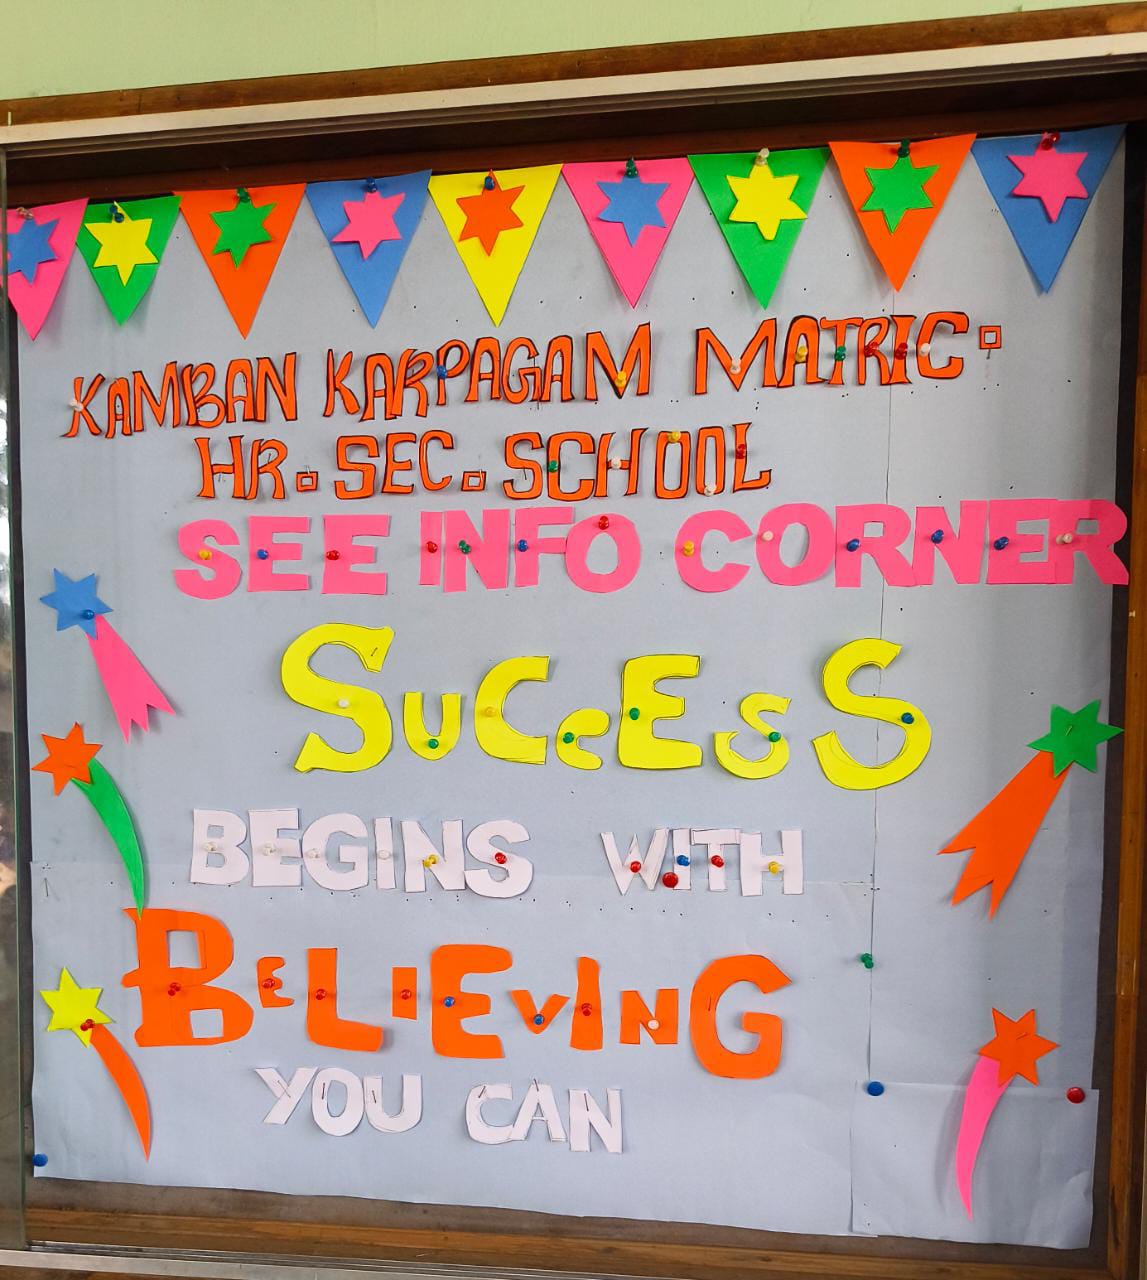 KAMBAN KARPAGAM MATRIC.
HR. SEC. SCHOOL
SEE INFO CORNER
SuCcEsS
BEGINS WITH
BELIEVING
YOU CAN